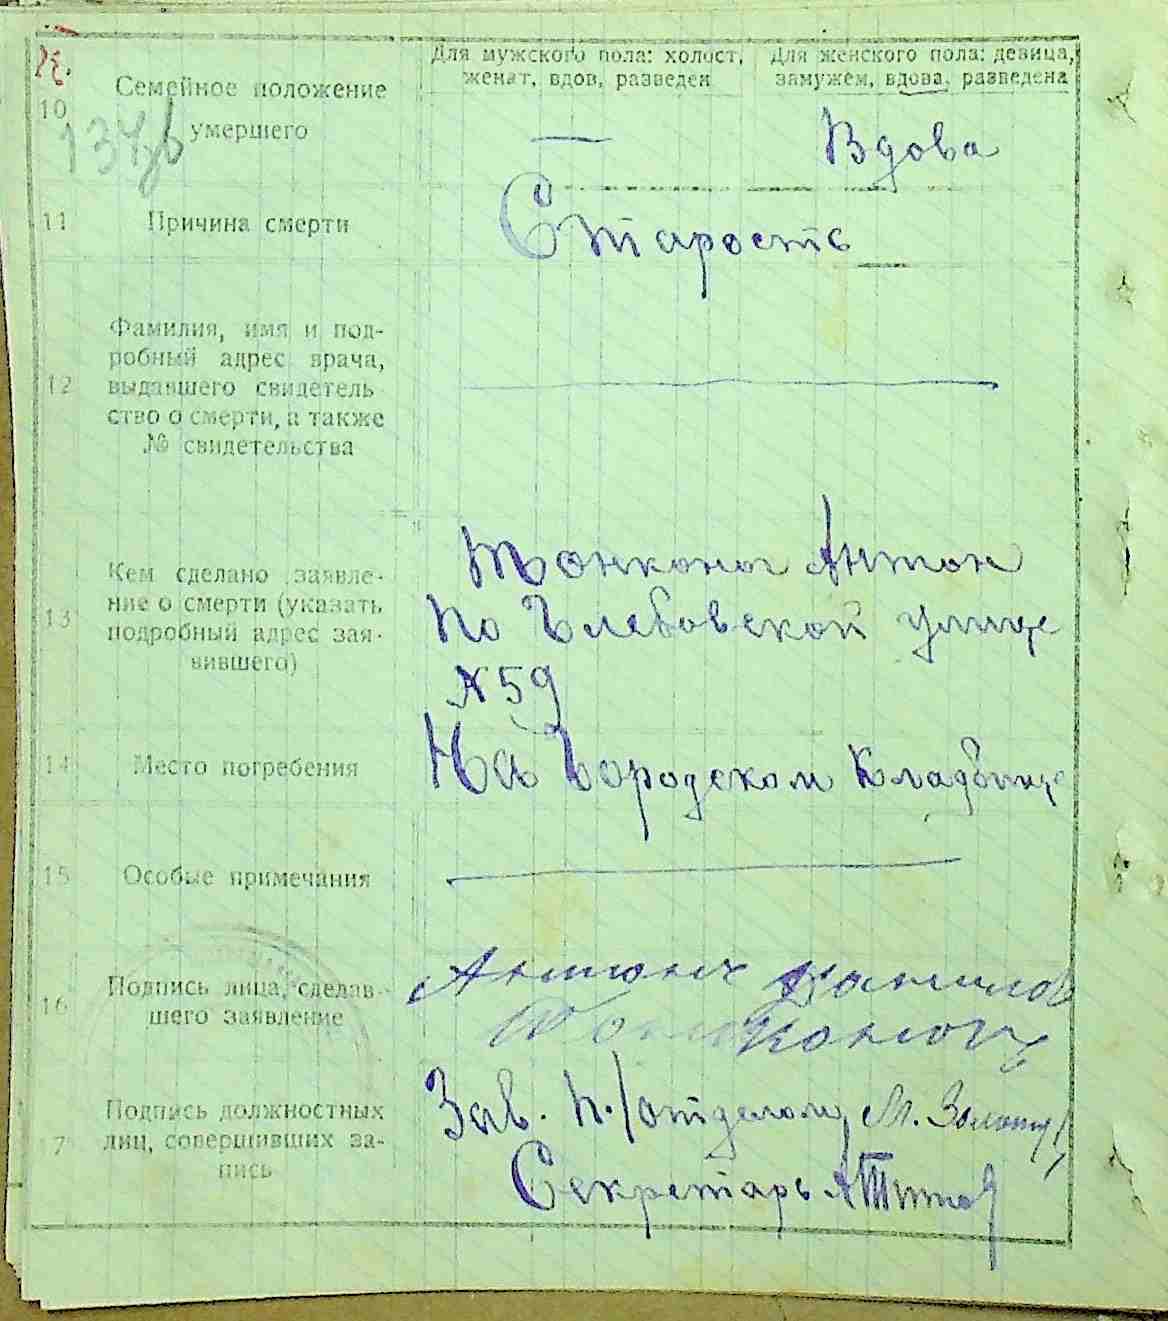 Для мужского пола: холост, женат, вдов, разведен
Для женского пола: девица, замужем, вдова, разведена
10
Семейное положение
умершего
—
Вдова
11
Причина смерти
Старость
12
Фамилия, имя и под-
робный адрес врача,
выдавшего свидетель-
ство о смерти, а также
№ свидетельства
13
Кем сделано заявле-
ние о смерти (указать
подробный адрес зая-
вившего)
Тонконог Антон
по Глебовской улице
№ 59
14
Место погребения
На Городском Кладбище
15
Особые примечания
16
Подпись лица, сделав-
шего заявление
Антон
Тонконог
17
Подпись должностных
лиц, совершивших за-
пись
Зав. п./отделом
Секретарь